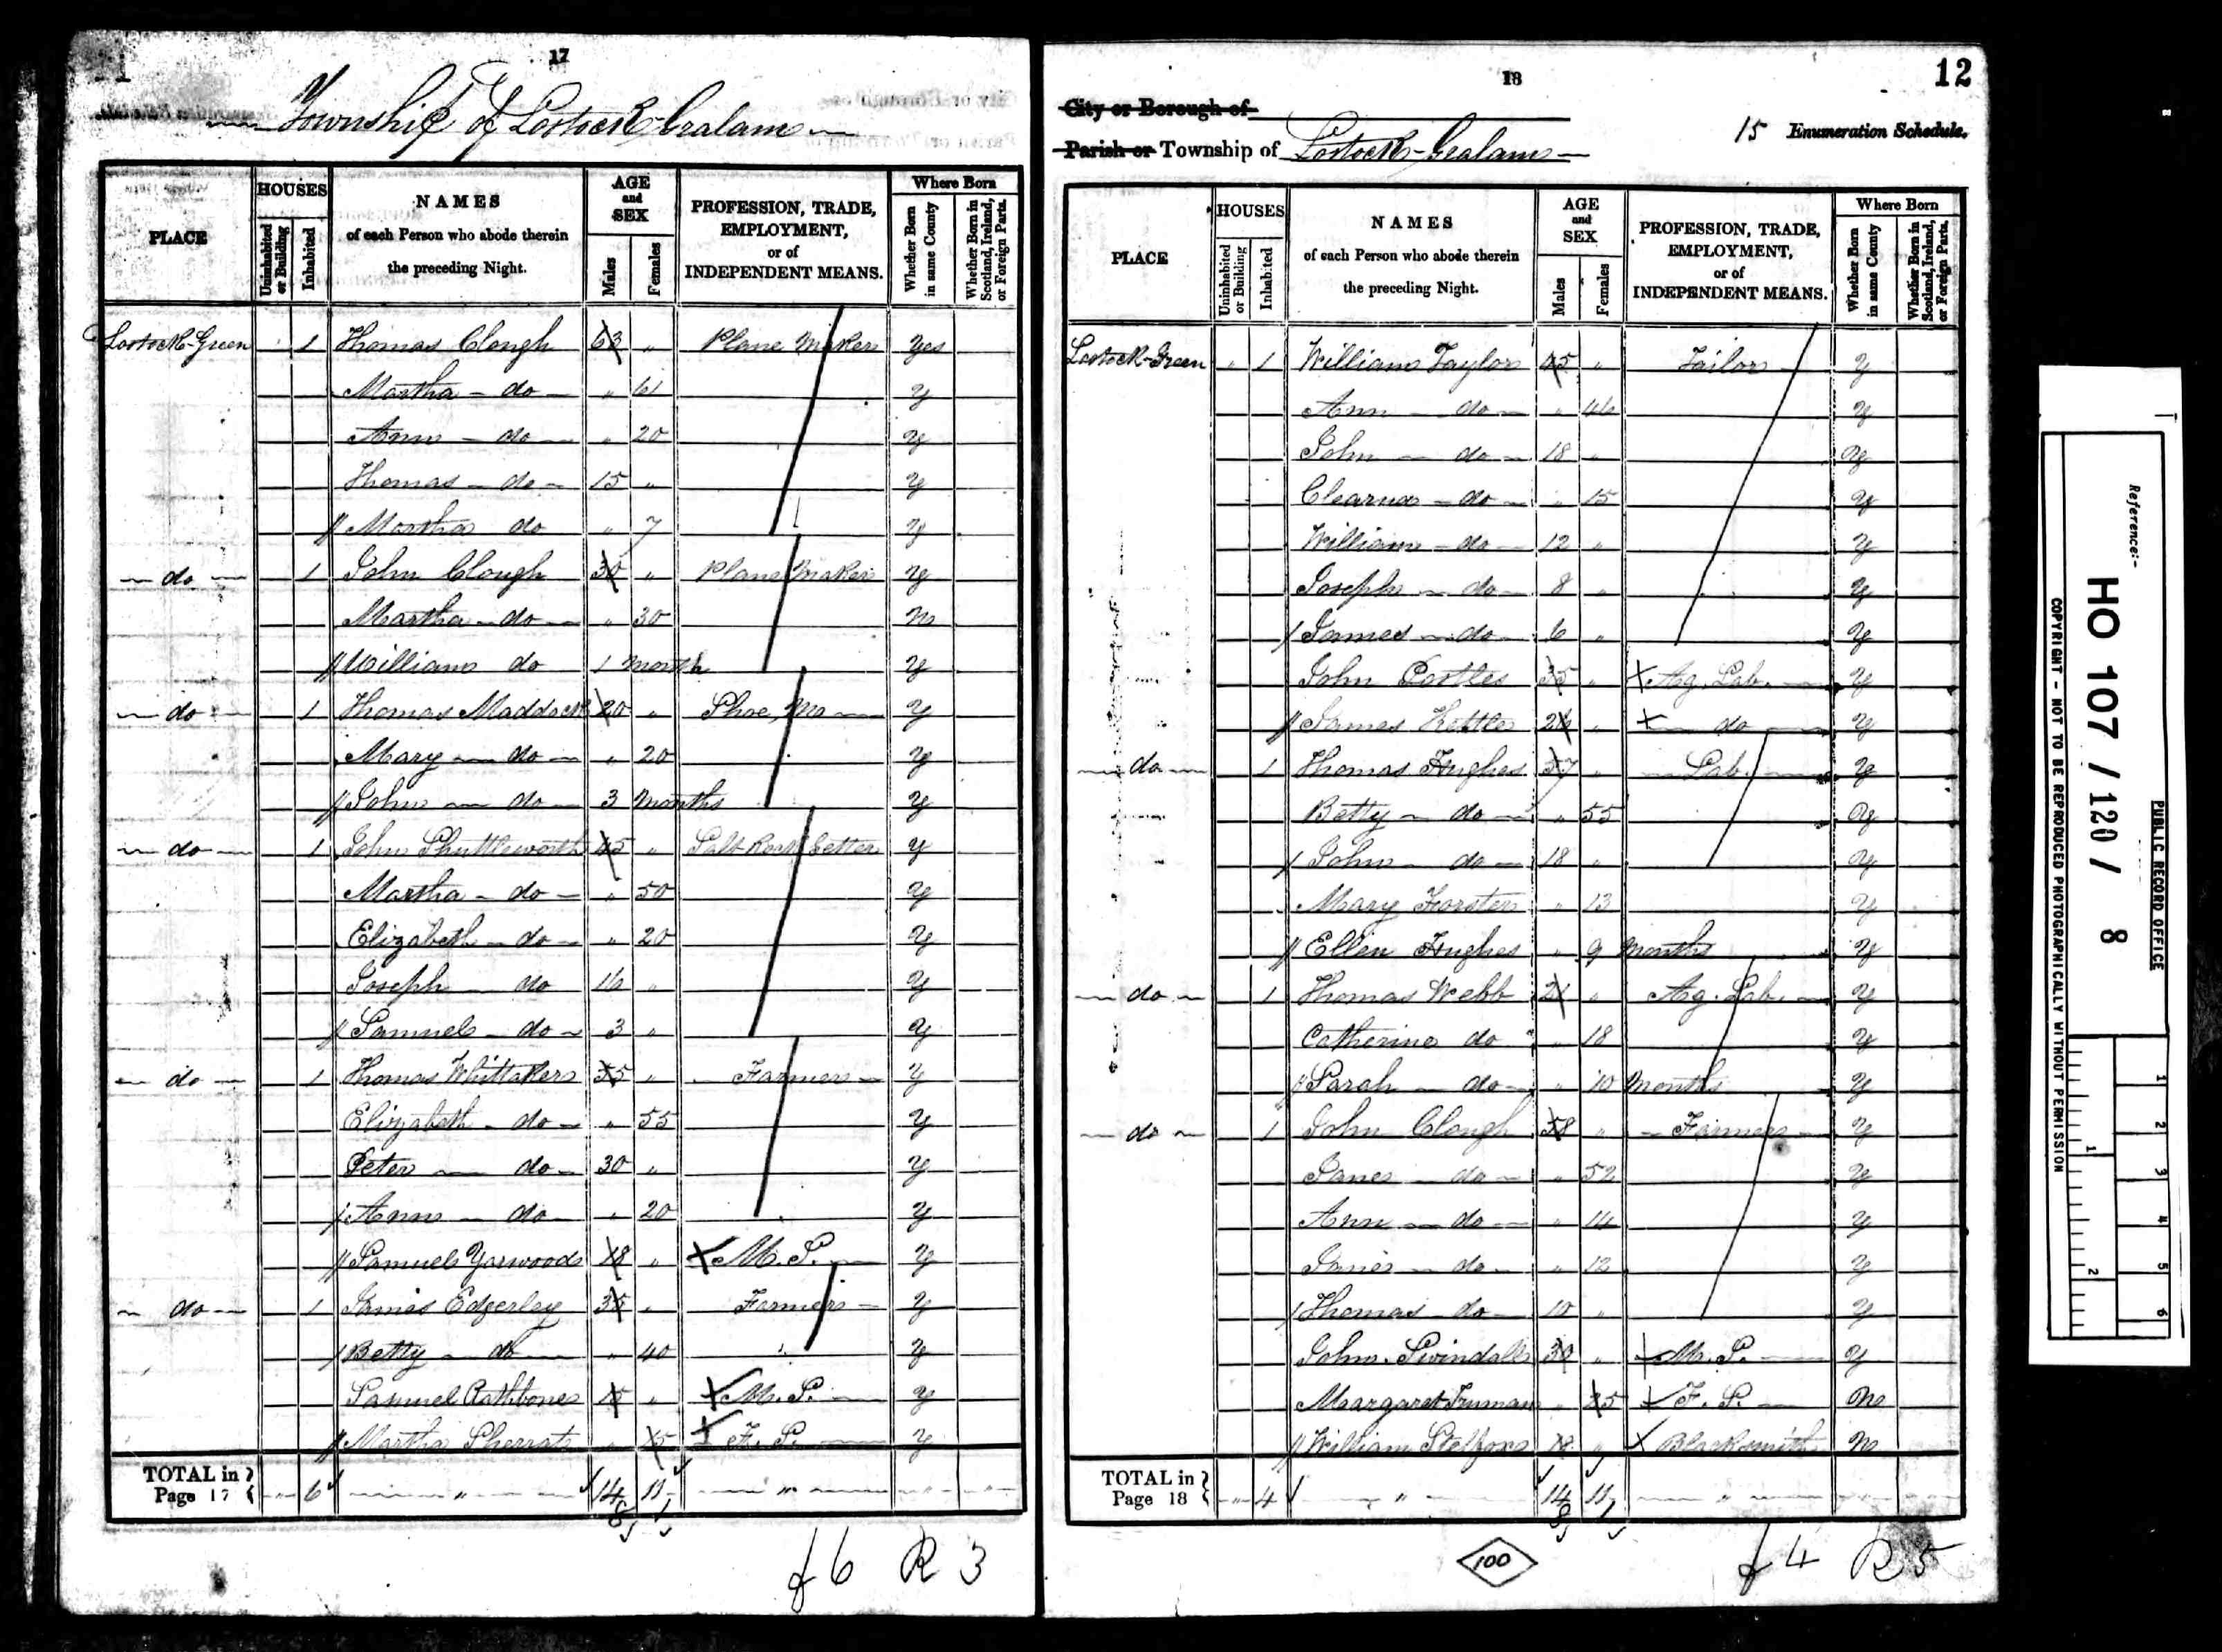 17
Township of Lostock-Gralam
PLACE
HOUSES
Uninhabited or Building
Inhabited
NAMES
of each Person who abode therein
the preceding Night.
AGE
and
SEX
Males
Females
PROFESSION, TRADE,
EMPLOYMENT,
or of
INDEPENDENT MEANS.
Where Born
Whether Born in same County
Whether Born in Scotland, Ireland, or Foreign Parts.
Lostock-Green 1 Thomas Clough 63 " Plane Maker Yes
Martha - do - " 61 Y
Ann - do - " 20 Y
Thomas - do - 15 " Y
// Martha do " 7 Y
- do - 1 John Clough 30 " Plane Maker Y
Martha - do - " 30 No
// William do 1 Month Y
- do - 1 Thomas Maddock 20 " Shoe Ma Y
Mary - do - " 20 Y
// John - do - 3 Months Y
- do - 1 John Shuttleworth 45 " Salt Rock Getter Y
Martha - do - " 50 Y
Elizabeth - do - " 20 Y
Joseph - do 16 " Y
// Samuel - do - 3 " Y
- do - 1 Thomas Whittaker 55 " Farmer Y
Elizabeth - do - " 55 Y
Peter - do - 30 " Y
/ Ann - do - " 20 Y
// Samuel Yarwood 18 " X M. S. Y
- do - 1 James Edgerley 35 " Farmer Y
/ Betty - do " 40 " Y
Samuel Rathbone 15 " X M. S. Y
// Martha Sherrat " 15 X F. S. Y
TOTAL in Page 17 " 6 " 14 11 " " "
f 6 R 3
18
12
City or Borough of
15 Enumeration Schedule.
Parish or Township of Lostock-Gralam
PLACE
HOUSES
Uninhabited or Building
Inhabited
NAMES
of each Person who abode therein
the preceding Night.
AGE
and
SEX
Males
Females
PROFESSION, TRADE,
EMPLOYMENT,
or of
INDEPENDENT MEANS.
Where Born
Whether Born in same County
Whether Born in Scotland, Ireland, or Foreign Parts.
Lostock-Green " 1 William Taylor 45 " Tailor Y
Ann - do - " 46 Y
John - do - 18 " Y
- do - " 15 Y
William - do - 12 " Y
Joseph - do - 8 " Y
/ James - do - 6 " Y
John Postles 35 " X Ag. Lab. Y
// James Kettle 26 " X do Y
- do - 1 Thomas Hughes 57 " Lab. Y
Betty - do - " 55 Y
/ John - do - 18 " Y
Mary Forster " 13 Y
// Ellen Hughes " 9 Months Y
- do - 1 Thomas Webb 21 " Ag. Lab. Y
Catherine do " 18 Y
// Sarah - do - " 10 Months Y
- do - 1 John Clough 58 " Farmer Y
Jane - do - " 52 Y
Ann - do - " 14 Y
Jane - do - " 12 Y
/ Thomas do - 10 " Y
John Swindalls 30 " X M. S. Y
Margaret Truman " 25 X F. S. No
// William 18 " X Blacksmith No
TOTAL in Page 18 " 4 " 14 11 "
100
f 4 R 5
Reference:-
HO 107 / 120 / 8
PUBLIC RECORD OFFICE
COPYRIGHT - NOT TO BE REPRODUCED PHOTOGRAPHICALLY WITHOUT PERMISSION
1 2 3 4 5 6
1 2